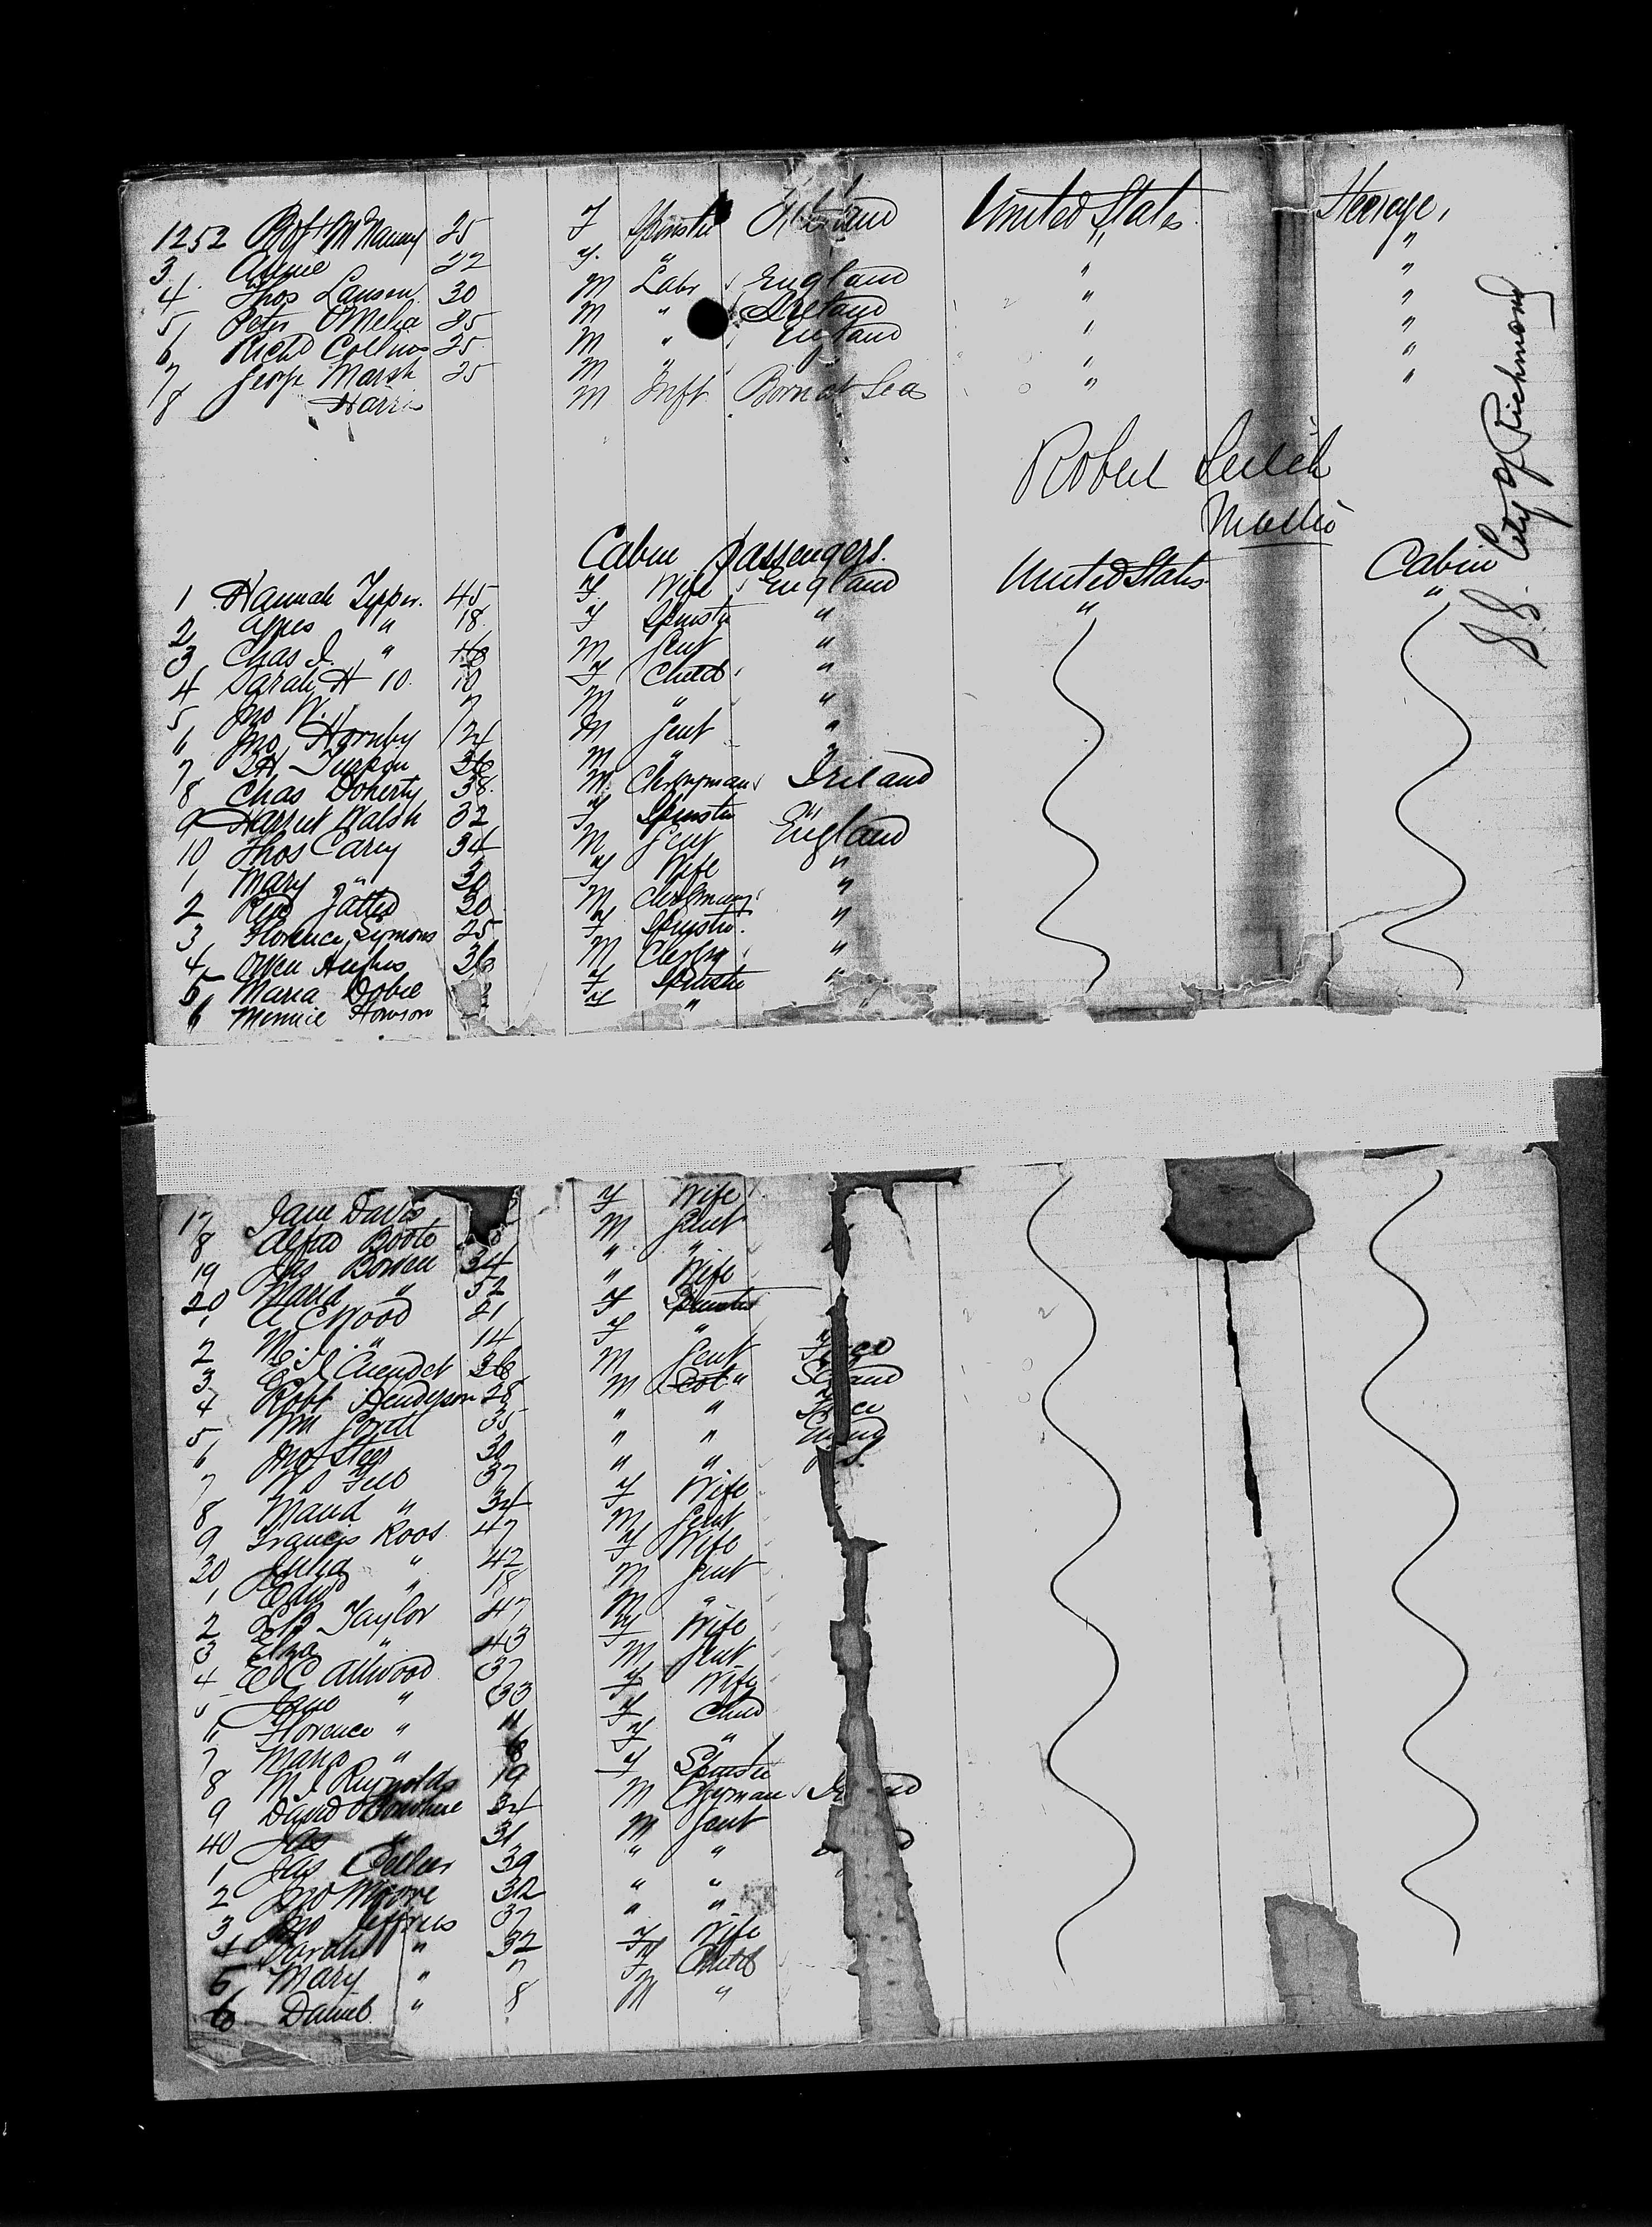 1252 Bgt McNanny 25 F Spinster Ireland United States Steerage,
3 Annie 22 F " " "
4 Thos Lauson 30 M Labr England " "
5 Peter OMelia 25 M " Ireland " "
6 Richd Collins 25 M " England " "
7 George Marsh 25 M " " " "
8 Harris M Inft Born at Sea " "
Robert Leitch
Master
S.S. City of Richmond
Cabin Passengers.
1 Hannah Tipper. 45 F. Wife England United States Cabin
2 Agnes " 18 F Spinstr " " "
3 Chas J. " M Gent "
4 Sarah H 10. 10 F Child "
5 Jno W. " 7 M " "
6 Jno Hornby 24 M Gent "
7 36 M "
8 Chas Doherty 38. M Clergyman Ireland
9 Harriet Walsh 32 F Spinster "
10 Thos Carey 34 M Gent England
1 Mary " 30 F Wife "
2 Revd 30 M Clergman "
3 Florence Symons 25 F Spinstr. "
4 Owen Hughes 36 M Clergy "
5 Maria Dobie F Spinster "
6 Minnie Howson F " "
17 Jane Davis F Wife
8 Alfred Boote M Gent
19 Jas Bowen 34 " "
20 Maria " 52 " Wife
1 A C Wood 21 F Spinster
2 M. J. " 14 F "
3 36 M Gent
4 Robt Henderson 28 M Scot "
5 Wm 35 " "
6 Jno Steer 30 " "
7 37 " "
8 Maud " 34 F Wife
9 Francis Roos 47 M Gent
30 Julia " 42 F Wife
1 Edwd " 18 M Gent
2 Taylor 47 M "
3 Eliza " 43 F Wife
4 E C Attwood 37 M Gent
5 Jane " 33 F Wife
6 Florence " 11 F Child
7 Maria " F "
8 M J Reynolds 19 F Spinster
9 David 34 M Clgyman
40 Jas " 31 M Gent
1 Jas 39 " "
2 Jno Moore 32 " "
3 Jno Jeffries 37 " "
4 Sarah " 32 F Wife
5 Mary " 7 F Child
6 Daniel " 8 M "